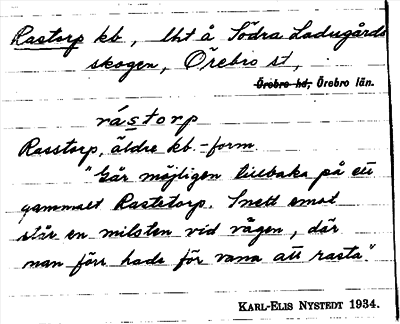 Rastorp kb, lht å Södra Ladugårds
skogen, Örebro st,
Örebro hd, Örebro län.
rástorp
Rasstorp, äldre kb.-form
"Går möjligen tillbaka på ett
gammalt Rastetorp. Snett emot
står en milsten vid vägen, där
man förr hade för vana att rasta."
KARL-ELIS NYSTEDT 1934.